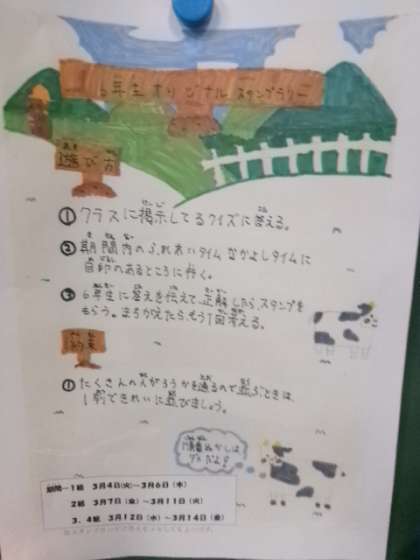 6年生オリジナルスタンプラリー
遊び方
① クラスに掲示してるクイズに答える。
② 期間内のふれあいタイム なかよしタイムに
目印のあるところに行く。
③ 6年生に答えを伝えて、正解したら、スタンプを
もらう。まちがえたら、もう1回考える。
約束
① たくさんの人がろうかを通るので並ぶときは
1列できれいに並びましょう。
順番ぬかしは
ダメだよ!
期間ー1組 3月4日(火)～3月6日(木)
2組 3月7日(金)～3月11日(火)
3、4組 3月12日(水)～3月14日(金)